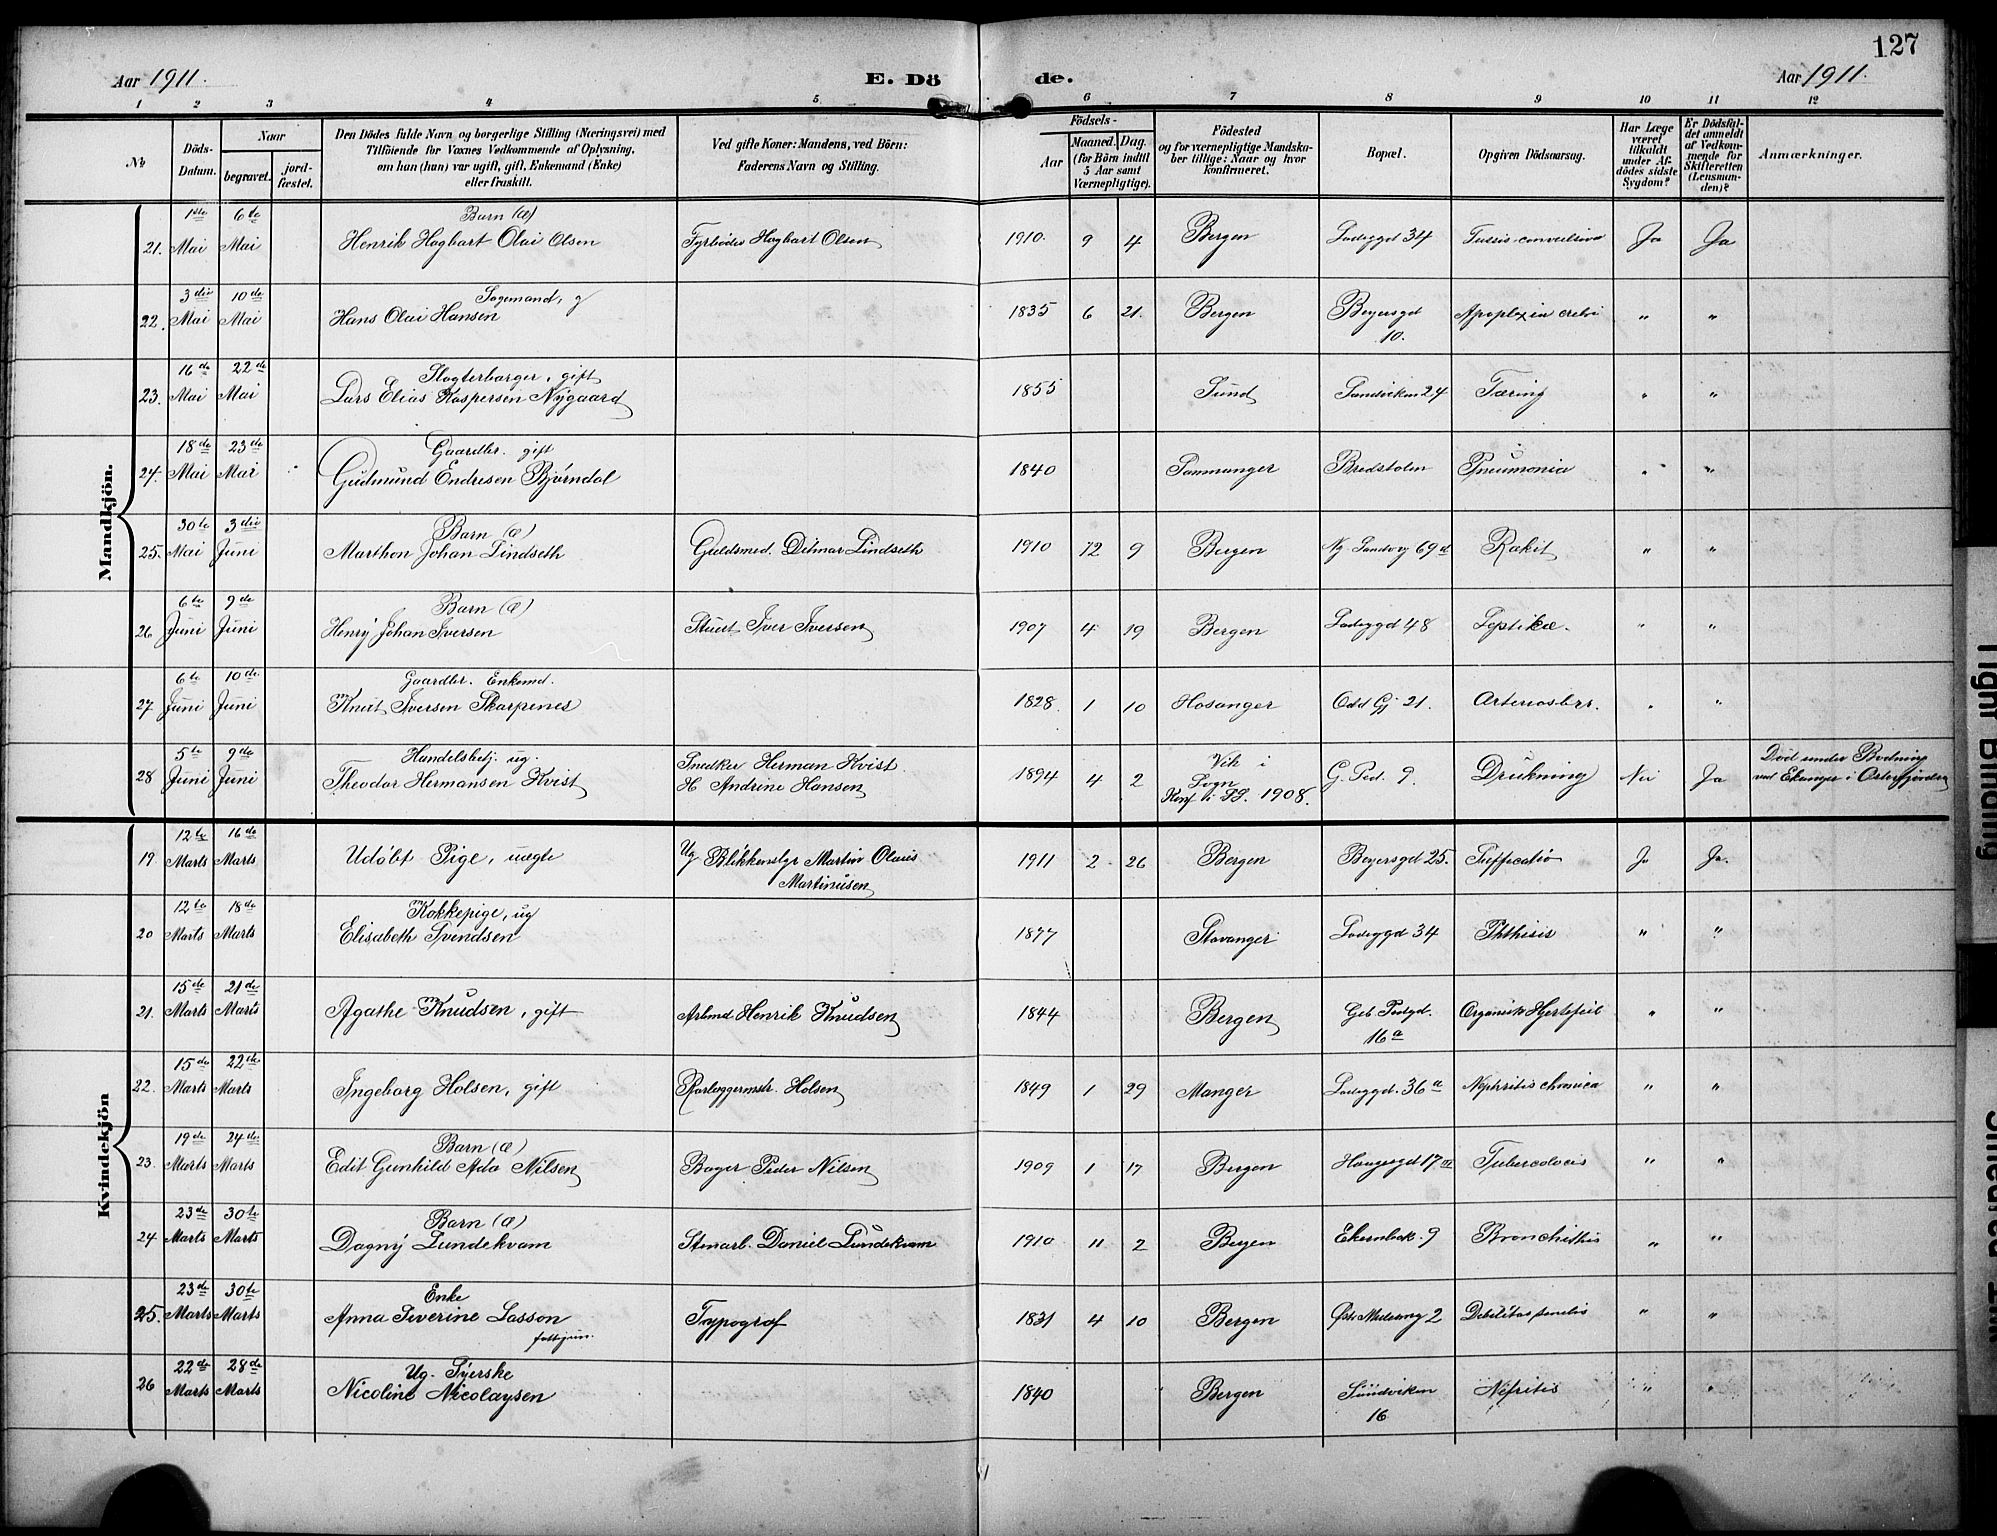 127
Aar 1911.
E. Dö de.
Aar 1911.
1 2 3 4 5 6 7 8 9 10 11 12
No
Döds-Datum.
Naar
begravet.
jord-fæstet.
Den Dödes fulde Navn og borgerlige Stilling (Næringsvei) med
Tilföiende for Voxnes Vedkommende af Oplysning,
om han (hun) var ugift, gift, Enkemand (Enke)
eller fraskilt.
Ved gifte Koner: Mandens, ved Börn:
Faderens Navn og Stilling.
Födsels-
Aar
Maaned. Dag.
(for Börn indtil
5 Aar samt
Værnepligtige).
Födested
og for værnepligtige Mandska-
ber tillige: Naar og hvor
konfirmeret.
Bopæl.
Opgiven Dödsaarsag.
Har Læge
været
tilkaldt
under Af-
dödes sidste
Sygdom?
Er Dödsfal-
det anmeldt
af Vedkom-
mende for
Skifteretten
(Lensman-
den)?
Anmærkninger.
Mandkjön.
1ste 6te Barn (æ)
21. Mai Mai Henrik Hagbart Olai Olsen Fyrböder Hagbart Olsen 1910. 9 4 Bergen Ladeggd 34 Tussis convulsiva Ja Ja
3die 10de g
22. Mai Mai Hans Olai Hansen 1835 6 21. Bergen Beyersgd 10. Apoplexia " "
16de 22de gift
23. Mai Mai Lars Elias Kaspersen Nygaard 1855 Sund Sandviken 24 Tæring " "
18de 23de Gaardbr. gift
24. Mai Mai Gudmund Endresen Bjørndal 1840 Samnanger Bredstolen Pneumonia " "
30te 3die Barn (æ)
25. Mai Juni Marthon Johan Lindseth Guldsmed. Ditmar Lindseth 1910 12 9 Bergen Ny Sandvg 69d Rakit " "
6te 9de Barn (æ)
26 Juni Juni Henry Johan Iversen Stuert Iver Iversen 1907 4 19 Bergen Ladeggd 48 " "
6te 10de Gaardbr. Enkemd.
27 Juni Juni Knut Iversen Skarpenes 1828 1 10 Hosanger Odd Gj 21. " "
5te 9de Handelsbetj. ug.
28 Juni Juni Theodor Hermansen Kvist Snedker Herman Kvist. 1894 4 2 Vik i
H Andrine Hansen Sogn G. Ped. 9. Drukning Nei Ja Död under Rodning
Konf i SS. 1908. ved Ekanger i Osterfjorden
Kvindekjön
12te 16de
19. Marts Marts Udöbt Pige, uægte Ug Blikkenslgr Martin Olaus 1911 2 26 Bergen Beyersgd 25. Suffocatio Ja Ja.
Martinusen
12te 18de Kokkepige, ug
20 Marts Marts Elisabeth Svendsen 1877 Stavanger Ladeggd 34 Phthisis " "
15de 21de
21. Marts Marts Agathe Knudsen, gift Arbmd Henrik Knudsen 1844 Bergen 16a Organisk Hjertefeil " "
15de 22de
22. Marts Marts Ingeborg Holsen, gift Rørlæggermstr. Holsen 1849 1 29 Manger Ladeggd. 36a Nephritis chronica " "
19de 24de Barn (æ)
23. Marts Marts Edit Gunhild Ada Nilsen Bager Peder Nilsen 1909 1 17 Bergen Haugegd 17 Tuberculosis " "
23de 30te Barn (æ)
24 Marts Marts Dagny Lundekvam Stenarb. Daniel Lundekvam 1910 11 2 Bergen Ekernbak. 9 Bronchithis " "
23de 30te Enke
25. Marts Marts Anna Severine Sasson Typograf 1831 4 10 Bergen 2 Debilitas senilis " "
22de 28de Ug. Syerske
26 Marts Marts Nicoline Nicolaysen 1840 Bergen Sandviken 16 Nefritis " "
Tight Binding